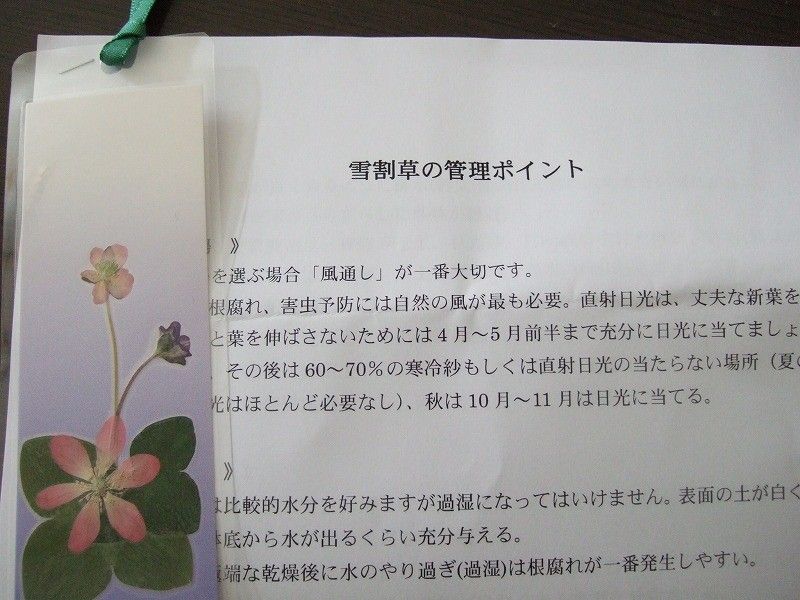 雪割草の管理ポイント
》
を選ぶ場合「風通し」が一番大切です。
根腐れ、害虫予防には自然の風が最も必要。直射日光は、丈夫な新葉を
と葉を伸ばさないためには4月～5月前半まで充分に日光に当てましょ
その後は60～70％の寒冷紗もしくは直射日光の当たらない場所（夏の
光はほとんど必要なし）、秋は10月～11月は日光に当てる。
》
は比較的水分を好みますが過湿になってはいけません。表面の土が白く
底から水が出るくらい充分与える。
端な乾燥後に水のやり過ぎ(過湿)は根腐れが一番発生しやすい。